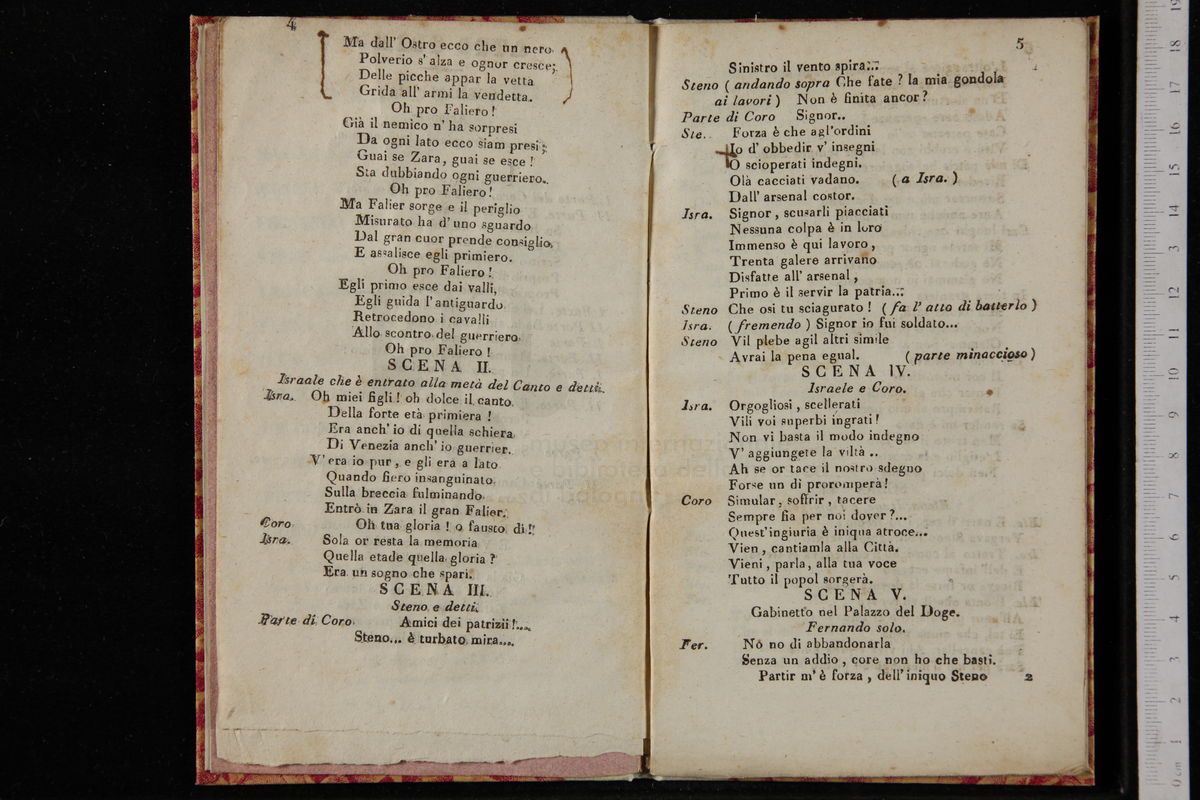 4
Ma dall' Ostro ecco che un nero
Polverio s' alza e ognor cresce;
Delle picche appar la vetta
Grida all' armi la vendetta.
Oh pro Faliero!
Già il nemico n' ha sorpresi
Da ogni lato ecco siam presi;
Guai se Zara, guai se esce!
Sta dubbiando ogni guerriero..
Oh pro Faliero!
Ma Falier sorge e il periglio
Misurato ha d' uno sguardo
Dal gran cuor prende consiglio,
E assalisce egli primiero.
Oh pro Faliero!
Egli primo esce dai valli,
Egli guida l' antiguardo
Retrocedono i cavalli
Allo scontro del guerriero.
Oh pro Faliero!
SCENA II.
Israele che è entrato alla metà del Canto e detti.
Isra. Oh miei figli! oh dolce il canto
Della forte età primiera!
Era anch' io di quella schiera
Di Venezia anch' io guerrier.
V' era io pur, e gli era a lato
Quando fiero insanguinato
Sulla breccia fulminando
Entrò in Zara il gran Falier.
Coro Oh tua gloria! o fausto dì!!
Isra. Sola or resta la memoria
Quella etade quella gloria?
Era un sogno che sparì.
SCENA III.
Steno e detti.
Parte di Coro Amici dei patrizii!...
Steno... è turbato mira....
5
Sinistro il vento spira...
Steno (andando sopra Che fate? la mia gondola
ai lavori) Non è finita ancor?
Parte di Coro Signor..
Ste. Forza è che agl'ordini
Io d' obbedir v' insegni
O scioperati indegni.
Olà cacciati vadano. (a Isra.)
Dall' arsenal costor.
Isra. Signor, scusarli piacciati
Nessuna colpa è in loro
Immenso è qui lavoro,
Trenta galere arrivano
Disfatte all' arsenal,
Primo è il servir la patria...
Steno Che osi tu sciagurato! (fa l' atto di batterlo)
Isra. (fremendo) Signor io fui soldato...
Steno Vil plebe agil altri simile
Avrai la pena egual. (parte minaccioso)
SCENA IV.
Israele e Coro.
Isra. Orgogliosi, scellerati
Vili voi superbi ingrati!
Non vi basta il modo indegno
V' aggiungete la viltà ..
Ah se or tace il nostro sdegno
Forse un dì proromperà!
Coro Simular, soffrir, tacere
Sempre fia per noi dover?...
Quest'ingiuria è iniqua atroce...
Vien, cantiamla alla Città.
Vieni, parla, alla tua voce
Tutto il popol sorgerà.
SCENA V.
Gabinetto nel Palazzo del Doge.
Fernando solo.
Fer. Nò no di abbandonarla
Senza un addio, core non ho che basti.
Partir m' è forza, dell' iniquo Steno
2